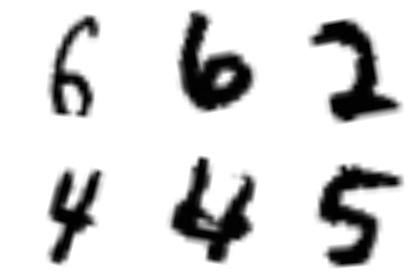 6 6 2
4 4 5